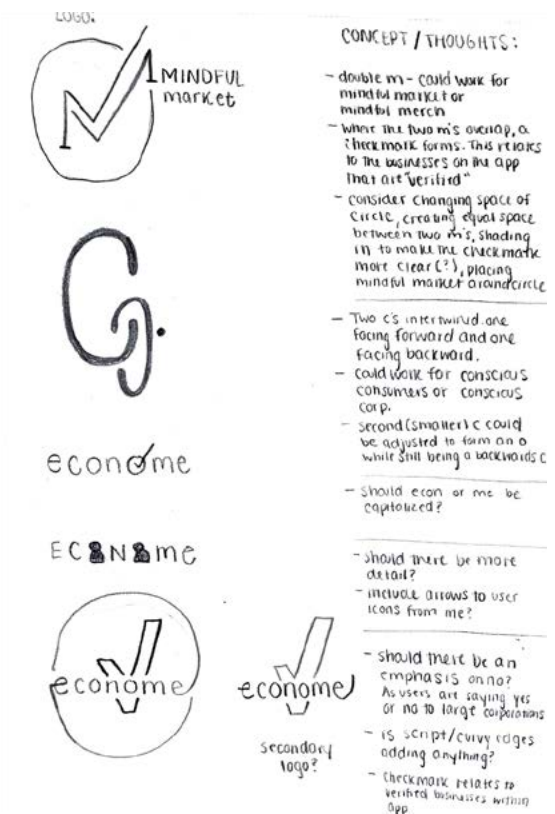 LOGO:
MINDFUL
market
econome
ECONOme
econome
econome
secondary
logo?
CONCEPT / THOUGHTS:
- double m - could work for
mindful market or
mindful merch
- where the two m's overlap, a
checkmark forms. This relates
to the businesses on the app
that are "verified"
- consider changing space of
circle, creating equal space
between two m's, shading
in to make the checkmark
more clear (?), placing
mindful market around circle
- Two c's intertwined. one
facing forward and one
facing backward.
- could work for conscious
consumers or conscious
corp.
- second (smaller) c could
be adjusted to form an o
while still being a backwards c
- should econ or me be
capitalized?
- should there be more
detail?
- include arrows to user
icons from me?
- should there be an
emphasis on no?
As users are saying yes
or no to large corporations
- is script/curvy edges
adding anything?
- checkmark relates to
verified businesses within
app